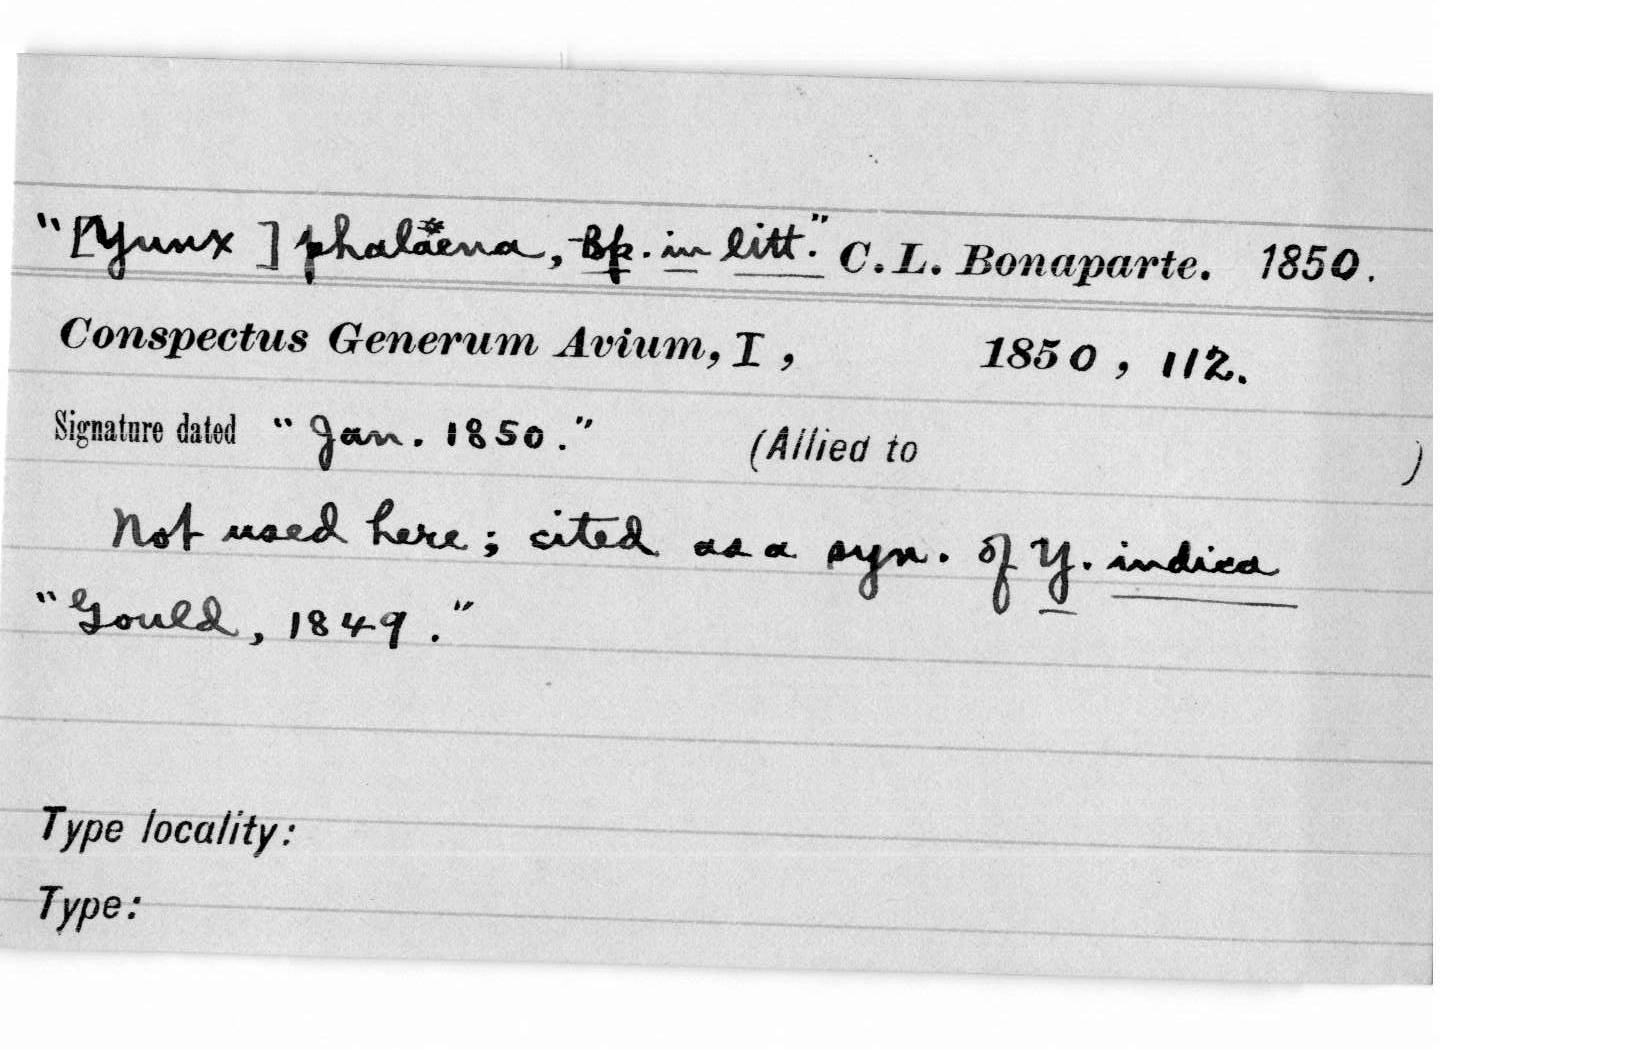 "[Yunx ] phalaena, Bp. in litt." C. L. Bonaparte. 1850.
Conspectus Generum Avium, I , 1850 , 112.
Signature dated "Jan. 1850." (Allied to )
Not used here; cited as a syn. of Y. indica
"Gould, 1849."
Type locality:
Type: